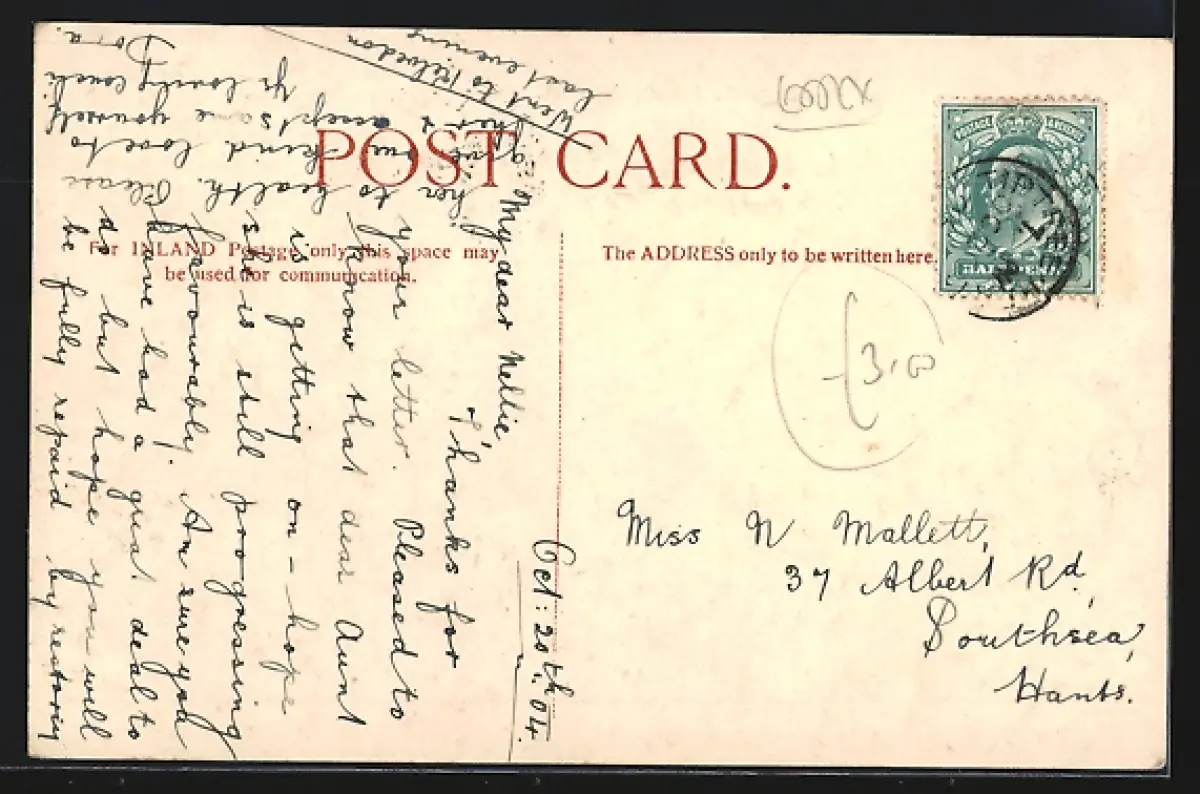 POST CARD.
For INLAND Postage only this space may
be used for communication.
The ADDRESS only to be written here.
HALFPENNY
Oct: 20th. 04.
My dear Nellie,
Thanks for
your letter. Pleased to
know that dear Aunt
is getting on - hope
she is still progressing
favourably. Am sure you
have had a great deal to
do but hope you will
be fully repaid by restoring
her to health. Please
give her our kind love to
accept same yourself
Yr lovely
Dora.
Went to Kelvedon
last evening
Miss N Mallett,
37 Albert Rd,
Southsea,
Hants.
3.00